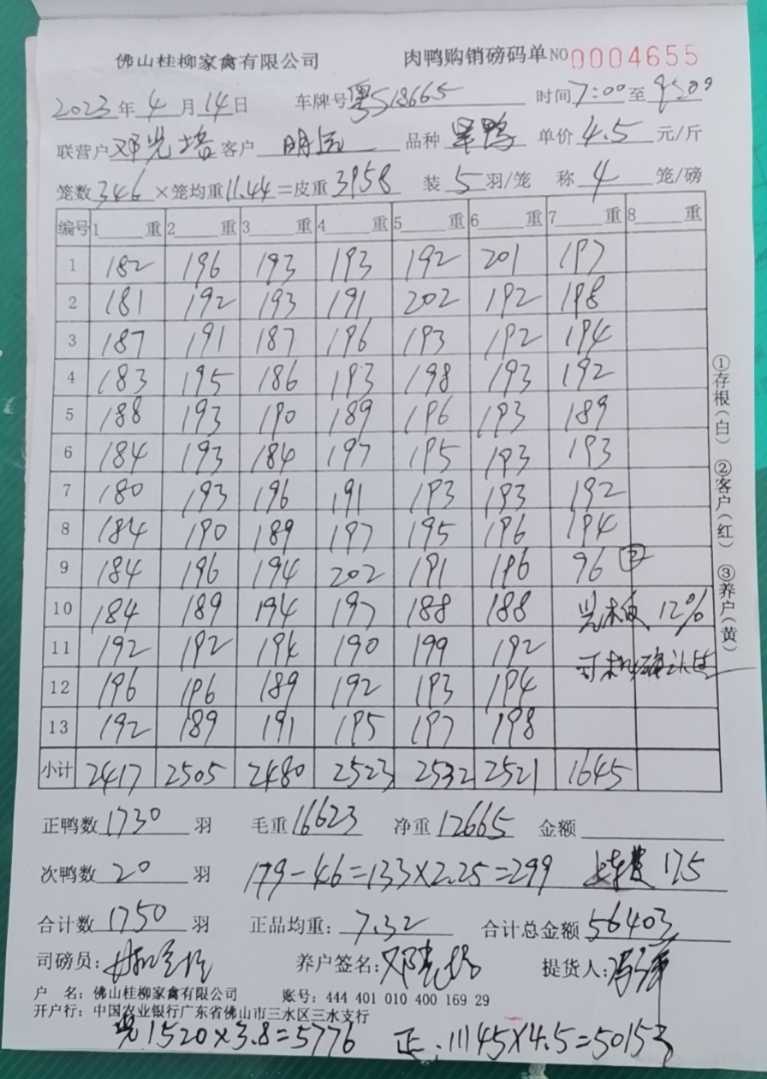 佛山桂柳家禽有限公司 肉鸭购销磅码单 NO 0004655
2023年4月14日 车牌号粤S18665 时间7:00至9:09
联营户 邓光培 客户 明 品种 旱鸭 单价4.5元/斤
笼数346×笼均重11.44=皮重3958 装5羽/笼 称4笼/磅
编号 1重 2重 3重 4重 5重 6重 7重 8重
1 182 196 193 193 192 201 197
2 181 192 193 191 202 192 198
3 187 191 187 196 193 192 194
4 183 195 186 193 198 193 192
5 188 193 190 189 196 193 189
6 184 193 184 197 195 193 193
7 180 193 196 191 193 193 192
8 184 190 189 197 195 196 194
9 184 196 194 202 191 196 96 ②
10 184 189 194 197 188 188 光 12%
11 192 192 194 190 199 192 司机确认
12 196 196 189 192 193 194
13 192 189 191 195 197 198
小计 2417 2505 2480 2523 2532 2521 1645
正鸭数1730羽 毛重16623 净重12665 金额
次鸭数20羽 179-46=133×2.25=299 上车费 175
合计数1750羽 正品均重:7.32 合计总金额56403
司磅员: 养户签名:邓光培 提货人:
户 名:佛山桂柳家禽有限公司 账号:444 401 010 400 169 29
开户行:中国农业银行广东省佛山市三水区三水支行
光1520×3.8=5776 正:11145×4.5=50153
①存根(白) ②客户(红) ③养户(黄)